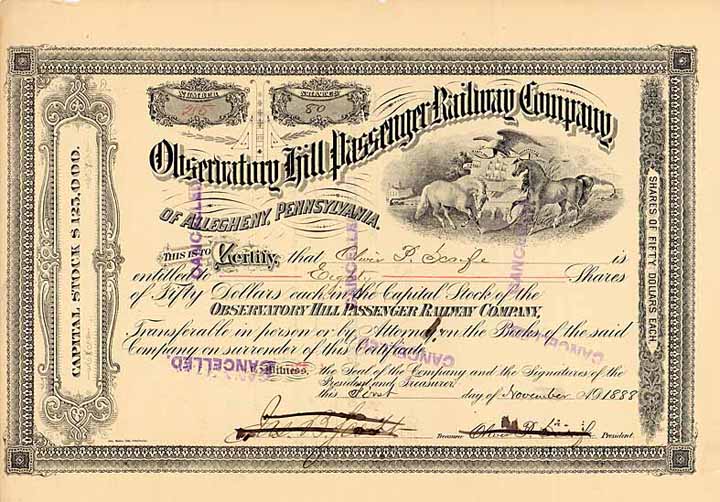 NUMBER
SHARES
80
Observatory Hill Passenger Railway Company
OF ALLEGHENY, PENNSYLVANIA.
THIS IS TO Certify, that Oliver P. Scaife is
entitled to Eighty Shares
of Fifty Dollars each in the Capital Stock of the
OBSERVATORY HILL PASSENGER RAILWAY COMPANY,
Transferable in person or by Attorney on the Books of the said
Company on surrender of this Certificate.
Witness, the Seal of the Company and the Signatures of the
President and Treasurer
this First day of November AD 1888
Jas. B. Scott Treasurer Oliver P. Scaife President.
CAPITAL STOCK $125,000.
SHARES OF FIFTY DOLLARS EACH.
CANCELLED
CANCELLED
CANCELLED
CANCELLED
CANCELLED